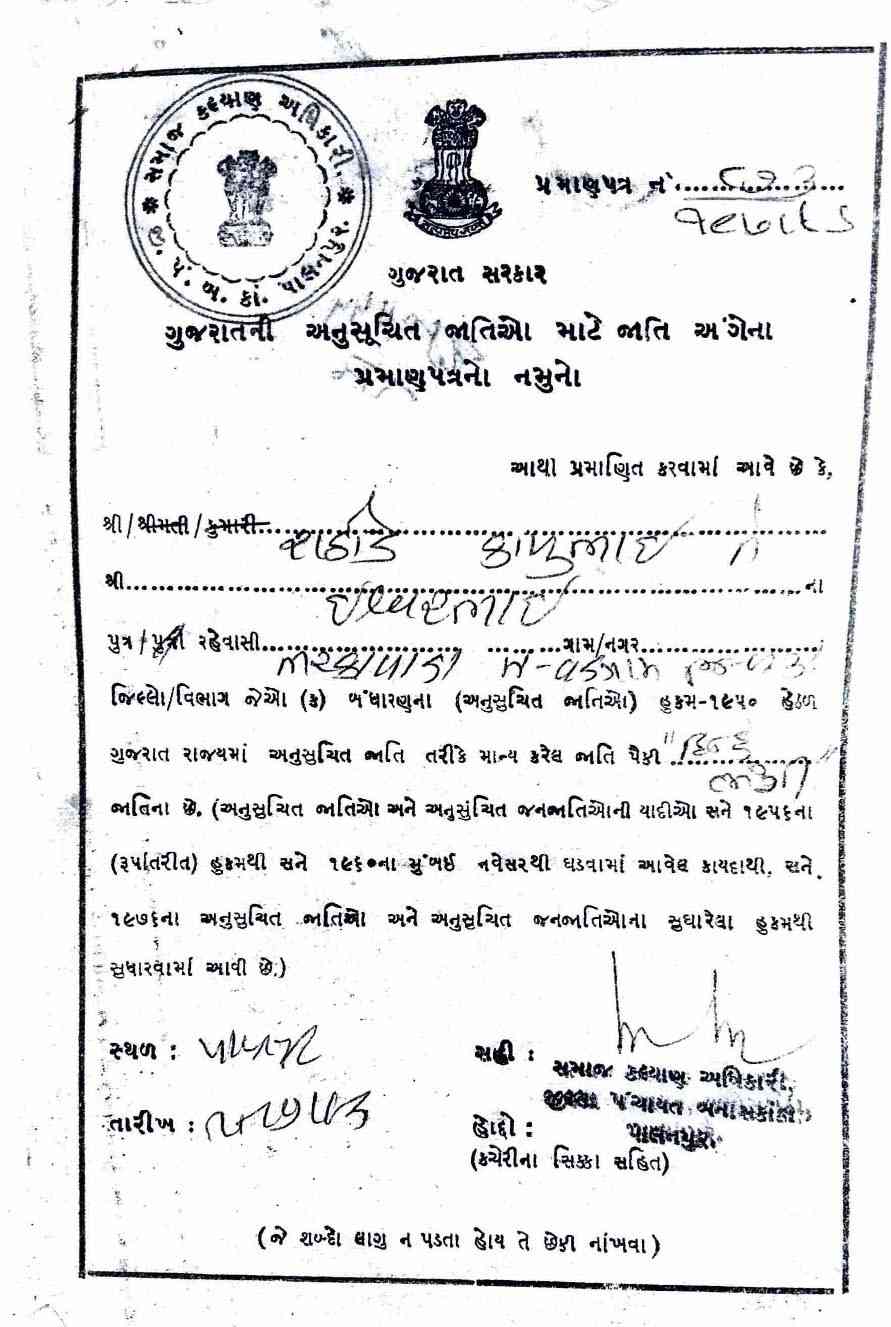 * સમાજ કલ્યાણ અધિકારી. *
જી. પં. બ. કાં. પાલનપુર.
પ્રમાણપત્ર નં
ગુજરાત સરકાર
ગુજરાતની અનુસૂચિત જાતિઓ માટે જાતિ અંગેના
પ્રમાણપત્રનો નમુનો
આથી પ્રમાણિત કરવામાં આવે છે કે,
શ્રી/શ્રીમતી/કુમારી રાઠોડ કાપુભાઇ તે
શ્રી ઇશ્વરભાઇ ના
પુત્ર/પુત્રી રહેવાસી ગ્રામ/નગર
તા-વડગામ
જિલ્લો/વિભાગ જેઓ (ક) બંધારણના (અનુસુચિત જાતિઓ) હુકમ-૧૯૫૦ હેઠળ
ગુજરાત રાજ્યમાં અનુસુચિત જાતિ તરીકે માન્ય કરેલ જાતિ પૈકી "હિન્દુ
જાતિના છે. (અનુસુચિત જાતિઓ અને અનુસુચિત જનજાતિઓની યાદીઓ સને ૧૯૫૬ના
(રૂપાંતરીત) હુકમથી સને ૧૯૬૦ના મુંબઈ નવેસરથી ઘડવામાં આવેલ કાયદાથી, સને.
૧૯૭૬ના અનુસુચિત જાતિઓ અને અનુસુચિત જનજાતિઓના સુધારેલા હુકમથી
સુધારવામાં આવી છે.)
સ્થળ :
સહી :
સમાજ કલ્યાણ અધિકારી,
જીલ્લા પંચાયત બનાસકાંઠા,
તારીખ :
હોદ્દો :
પાલનપુર.
(કચેરીના સિક્કા સહિત)
(જે શબ્દો લાગુ ન પડતા હોય તે છેકી નાંખવા)